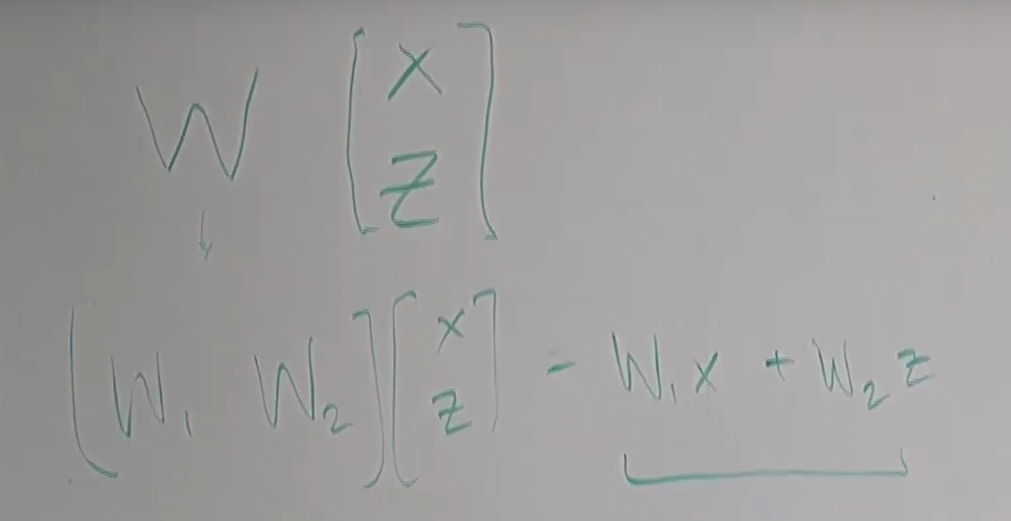 W [x z]
↓
[W₁ W₂] [x z] - W₁x + W₂z